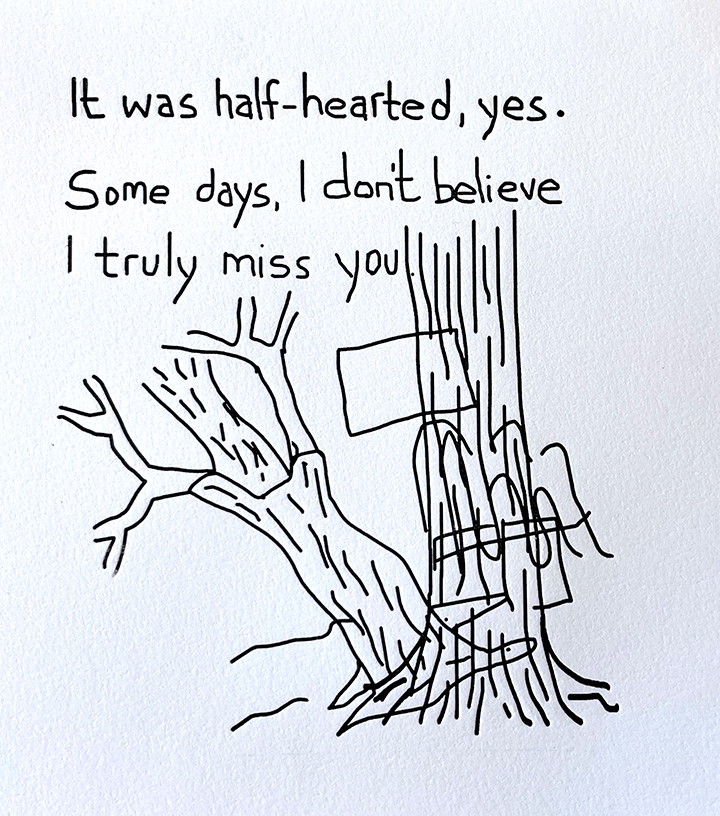 It was half-hearted, yes.
Some days, I don't believe
I truly miss you.